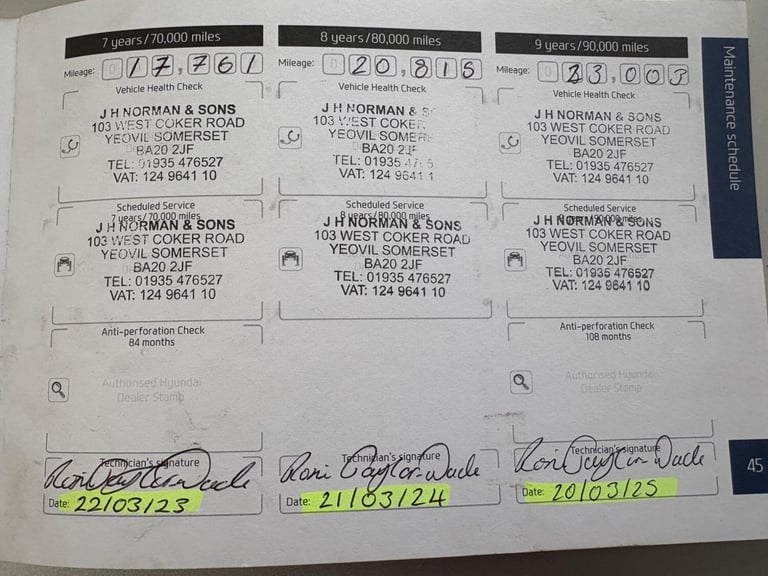 7 years/70,000 miles
Mileage: 0 17,761
Vehicle Health Check
J H NORMAN & SONS
103 WEST COKER ROAD
YEOVIL SOMERSET
BA20 2JF
TEL: 01935 476527
VAT: 124 9641 10
Scheduled Service
7 years/70,000 miles
J H NORMAN & SONS
103 WEST COKER ROAD
YEOVIL SOMERSET
BA20 2JF
TEL: 01935 476527
VAT: 124 9641 10
Anti-perforation Check
84 months
Authorised Hyundai
Dealer Stamp
Technician's signature
Roni Taylor-Wade
Date: 22/03/23
8 years/80,000 miles
Mileage: 0 20,818
Vehicle Health Check
J H NORMAN & S
103 WEST COKER
YEOVIL SOMERS
BA20 2JF
TEL: 01935
VAT: 124 9641 1
Scheduled Service
8 years/80,000 miles
J H NORMAN & SONS
103 WEST COKER ROAD
YEOVIL SOMERSET
BA20 2JF
TEL: 01935 476527
VAT: 124 9641 10
Technician's signature
Roni Taylor-Wade
Date: 21/03/24
9 years/90,000 miles
Mileage: 0 23,003
Vehicle Health Check
J H NORMAN & SONS
103 WEST COKER ROAD
YEOVIL SOMERSET
BA20 2JF
TEL: 01935 476527
VAT: 124 9641 10
Scheduled Service
9 years/90,000 miles
J H NORMAN & SONS
103 WEST COKER ROAD
YEOVIL SOMERSET
BA20 2JF
TEL: 01935 476527
VAT: 124 9641 10
Anti-perforation Check
108 months
Authorised Hyundai
Dealer Stamp
Technician's signature
Roni Taylor-Wade
Date: 20/03/25
Maintenance schedule
45